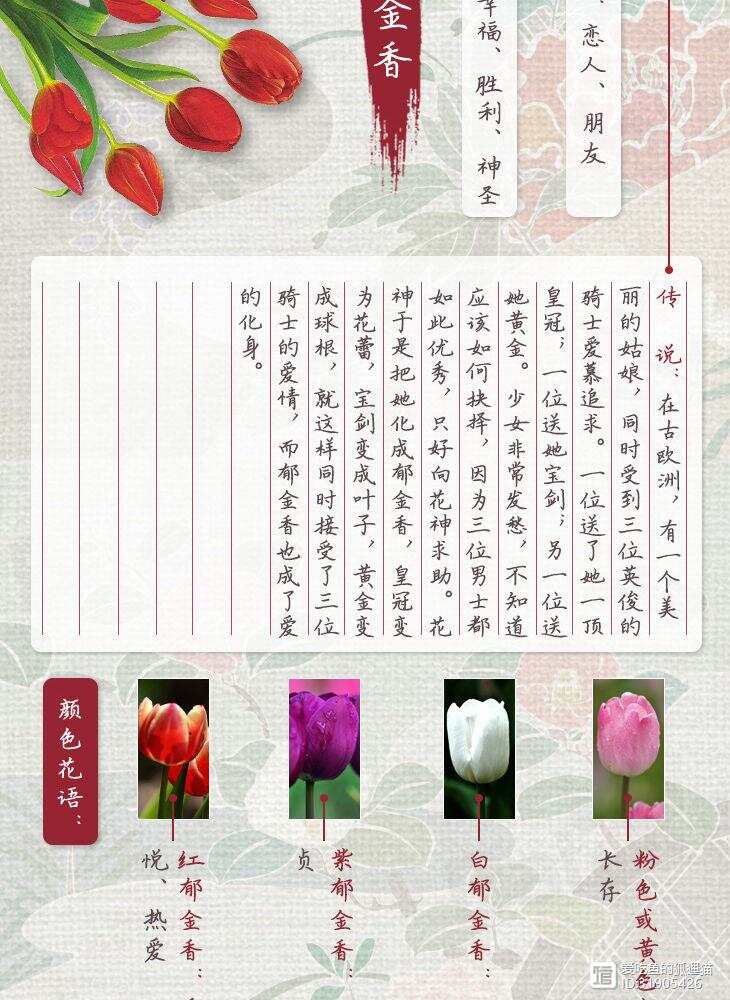 金香
幸福、胜利、神圣
：恋人、朋友
传说：在古欧洲，有一个美
丽的姑娘，同时受到三位英俊的
骑士爱慕追求。一位送了她一顶
皇冠；一位送她宝剑；另一位送
她黄金。少女非常发愁，不知道
应该如何抉择，因为三位男士都
如此优秀，只好向花神求助。花
神于是把她化成郁金香，皇冠变
为花蕾，宝剑变成叶子，黄金变
成球根，就这样同时接受了三位
骑士的爱情，而郁金香也成了爱
的化身。
颜色花语：
红郁金香：
悦、热爱
紫郁金香：
贞
白郁金香：
粉色或黄色
长存
爱吃鱼的狐狸猫
ID:61905426